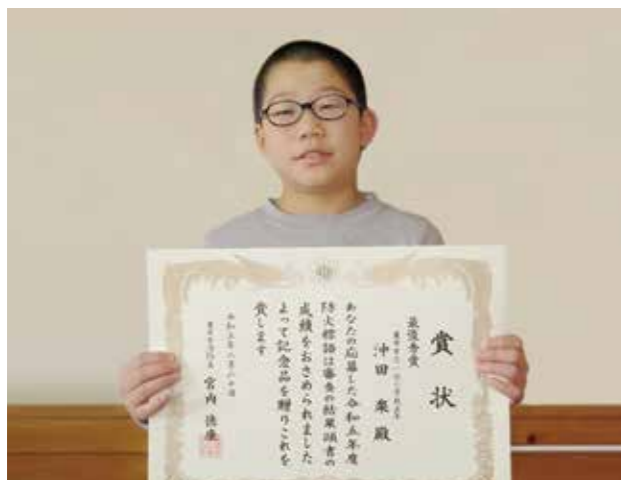 賞状
最優秀賞
沖田 楽 殿
あなたの応募した令和五年度
防火標語は審査の結果頭書の
成績をおさめられました
よって記念品を贈りこれを
賞します
宮内 徳康